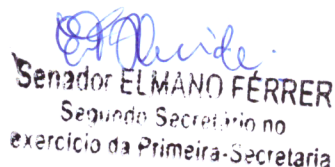 Senador ELMANO FÉRRER
Segundo Secretário no
exercício da Primeira-Secretaria